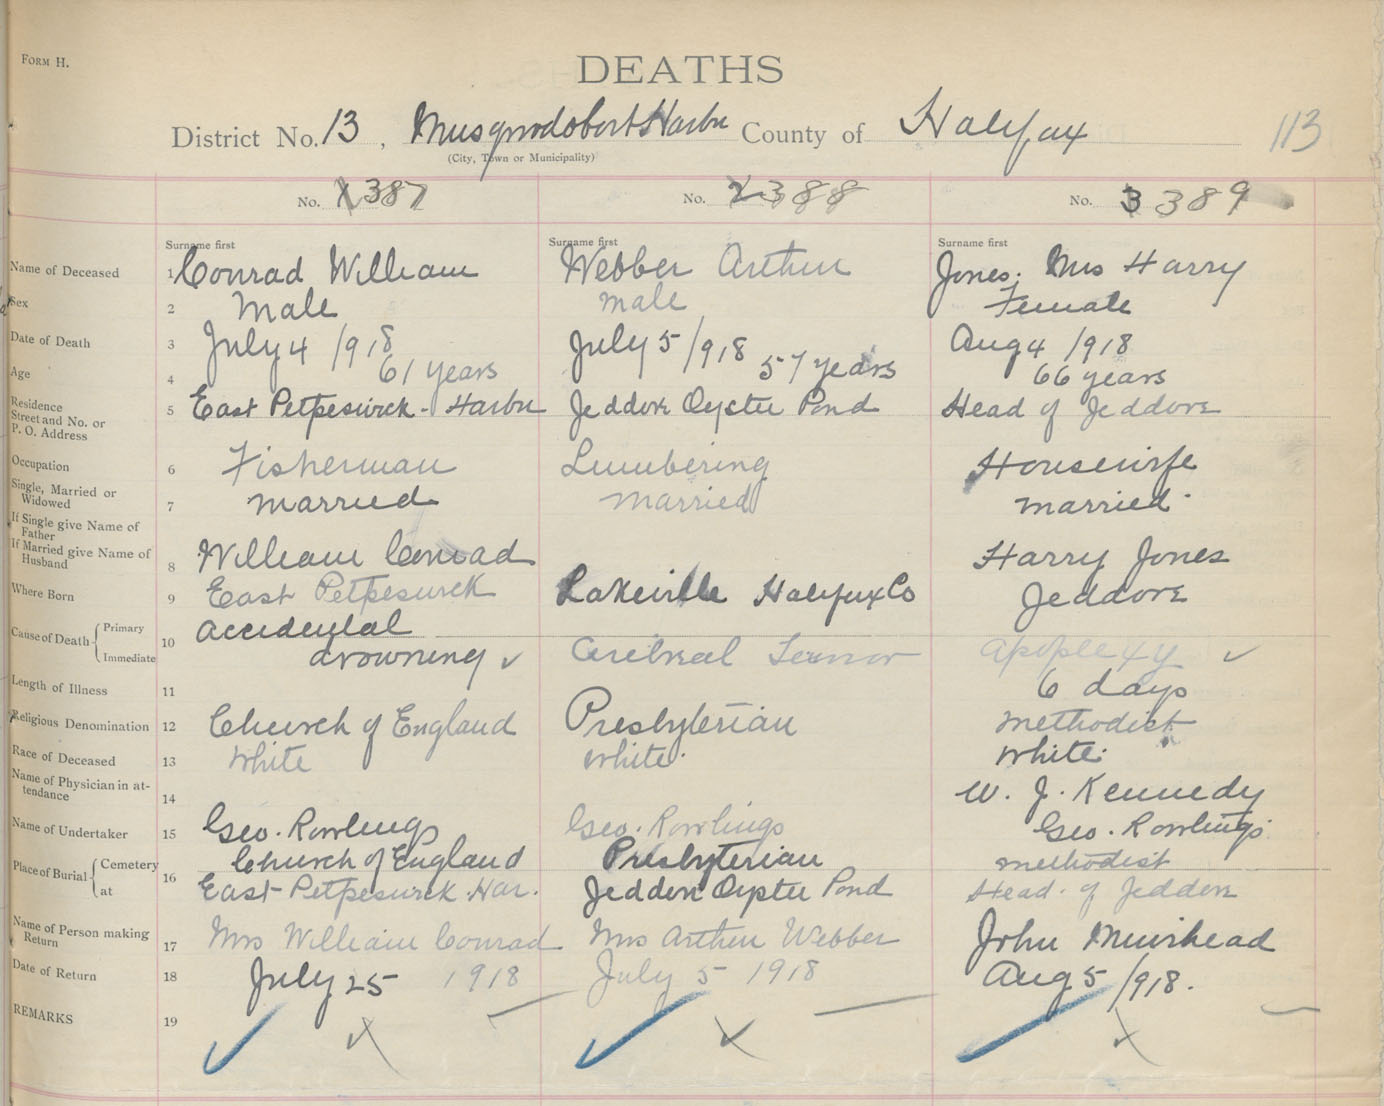 FORM H.
DEATHS
District No. 13, Musquodoboit Harbr County of Halifax 113
(City, Town or Municipality)
No. 1 387 No. 2 388 No. 3 389
Surname first Surname first Surname first
Name of Deceased 1 Conrad William Webber Arthur Jones. Mrs Harry
Sex 2 Male male Female
Date of Death 3 July 4 /918 July 5 /918 Aug 4 /918
Age 4 61 years 57 years 66 years
Residence
Street and No. or
P. O. Address 5 East Petpeswick - Harbr Jeddore Oyster Pond Head of Jeddore
Occupation 6 Fisherman Lumbering Housewife
Single, Married or
Widowed 7 married married married.
If Single give Name of
Father
If Married give Name of
Husband 8 William Conrad Harry Jones
Where Born 9 East Petpeswick Lakeville Halifax Co Jeddore
Cause of Death { Primary accidental
Immediate 10 drowning ✓ Cerebral apoplexy ✓
Length of Illness 11 6 days
Religious Denomination 12 Church of England Presbyterian methodist
Race of Deceased 13 White white. white.
Name of Physician in at-
tendance 14 W. J. Kennedy
Name of Undertaker 15 Geo. Rowlings Geo. Rowlings Geo. Rowlings
Place of Burial { Cemetery Church of England Presbyterian methodist
at 16 East Petpeswick Har. Jeddore Oyster Pond Head. of Jeddore
Name of Person making
Return 17 Mrs William Conrad Mrs Arthur Webber John Muirhead
Date of Return 18 July 25 1918 July 5 1918 Aug 5 /918.
REMARKS 19